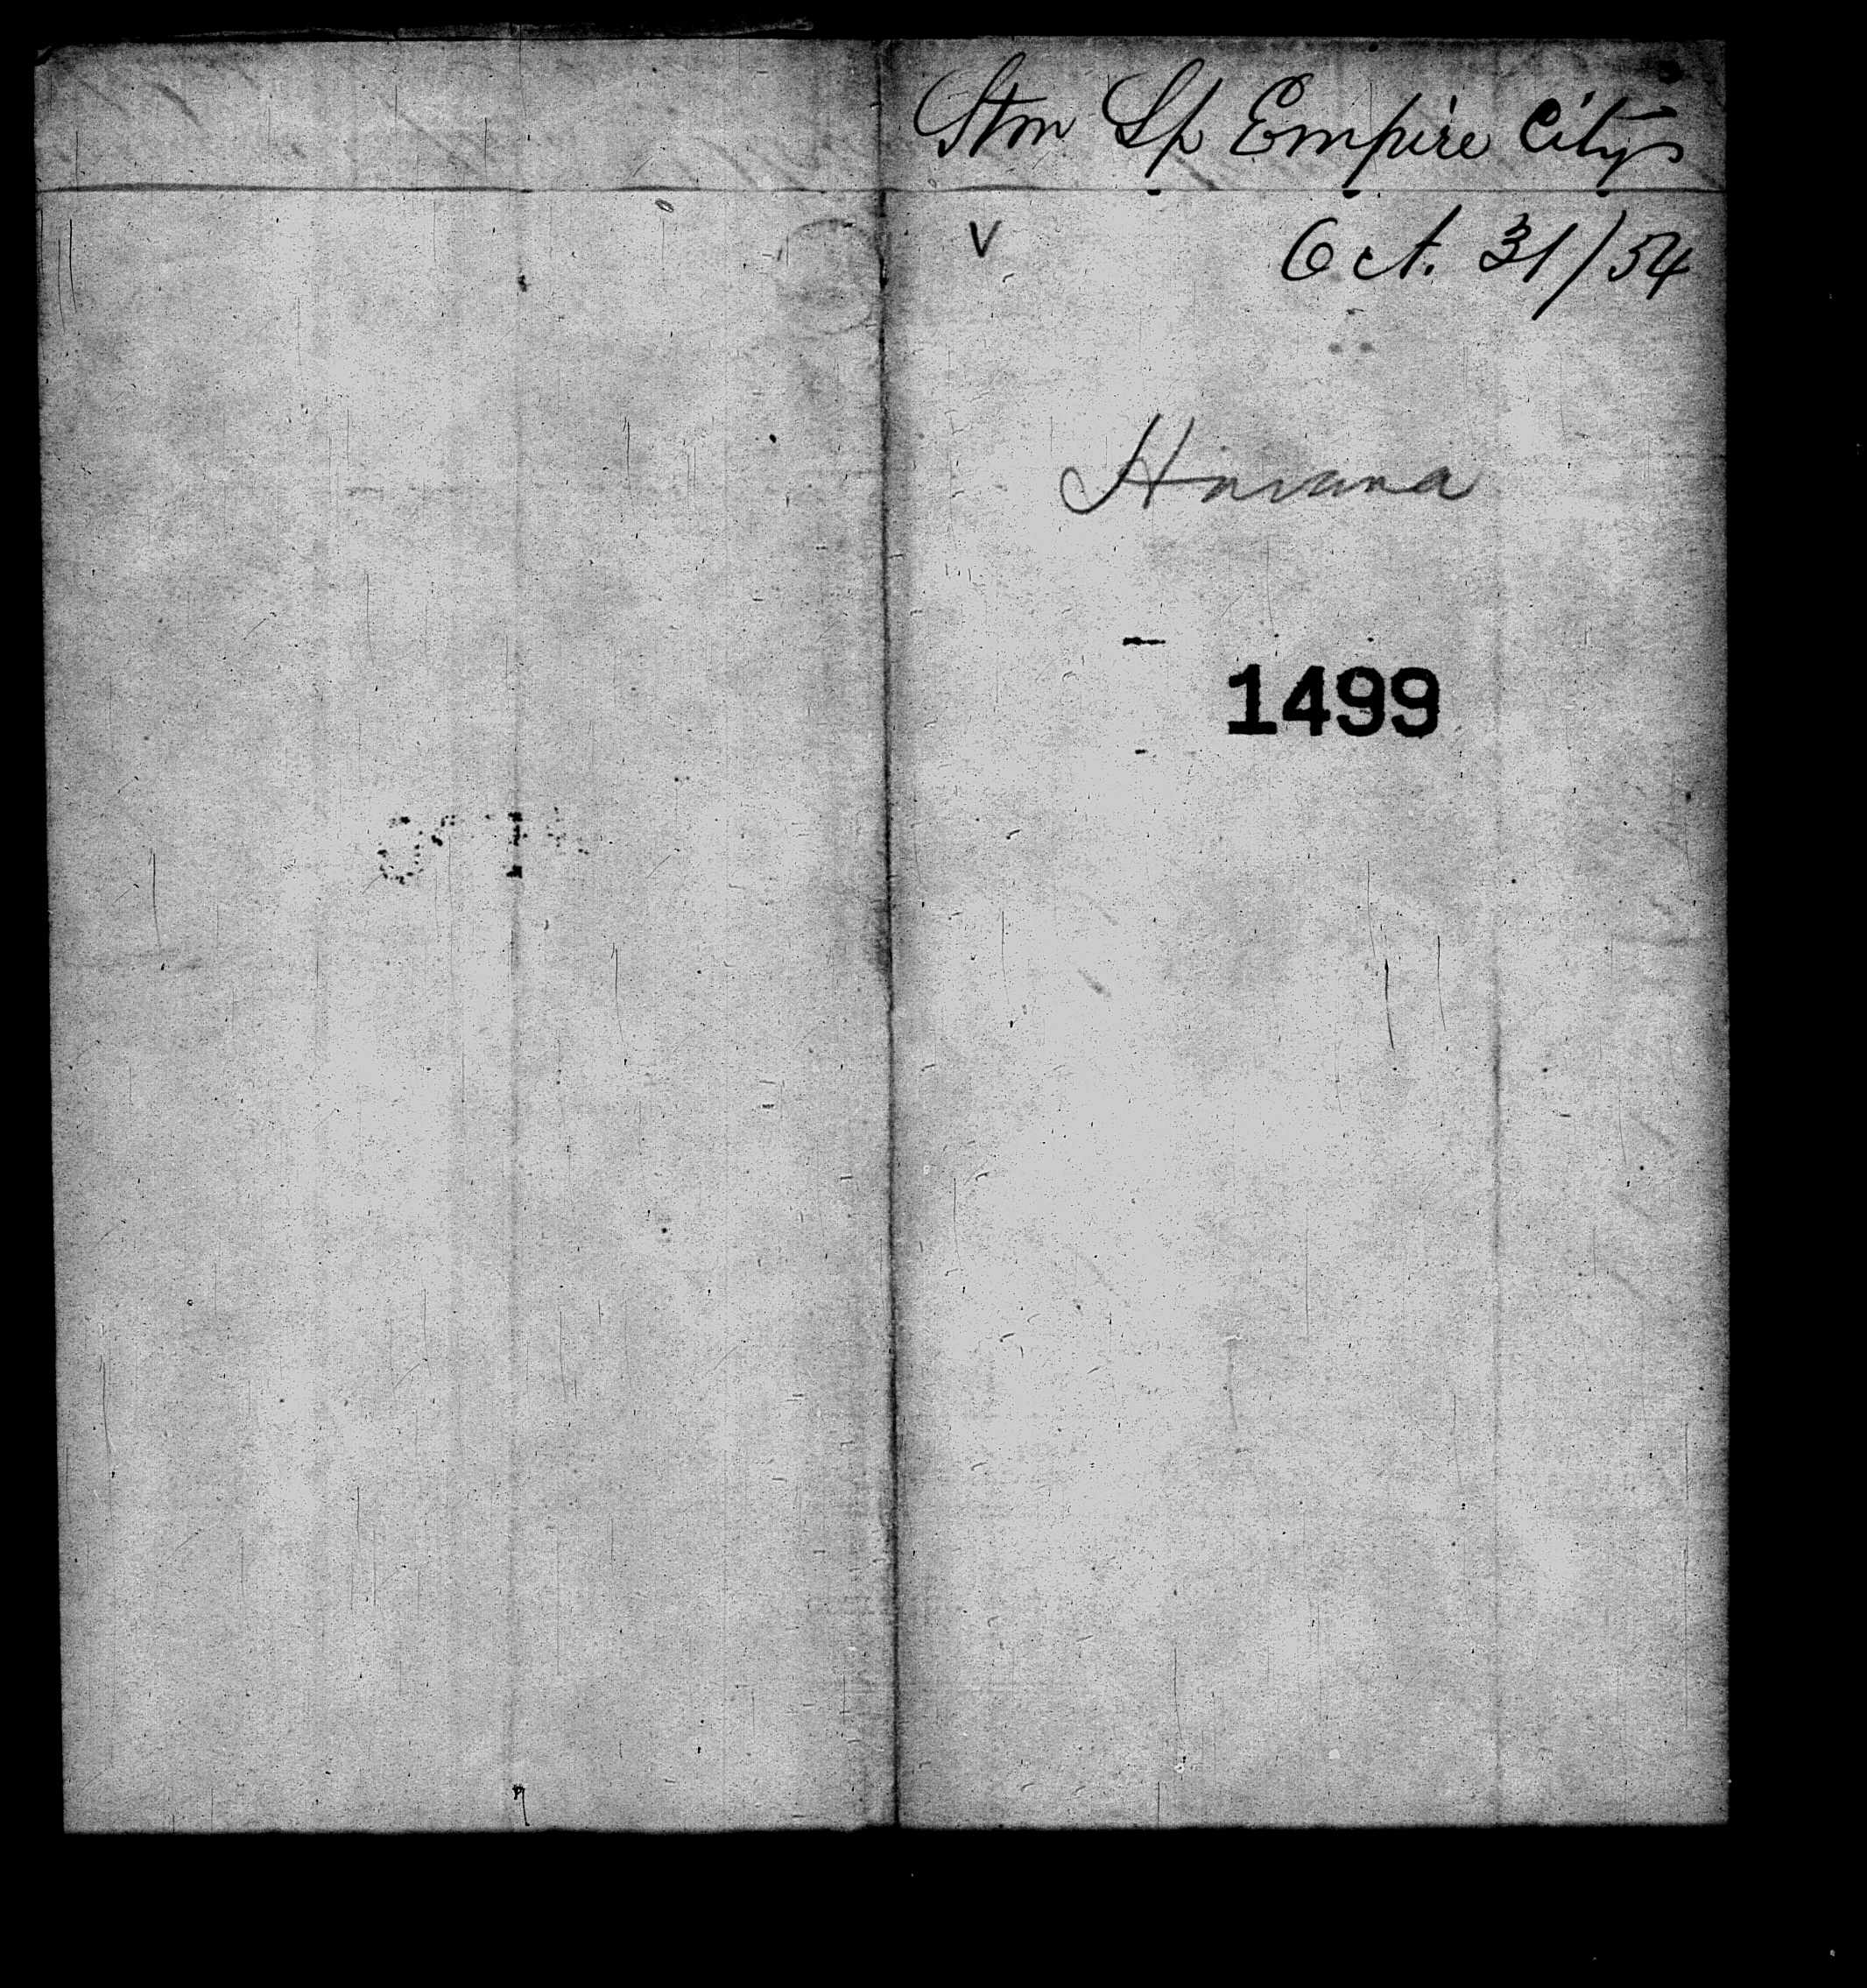 Stm Sp Empire City
v Oct. 31/54
Havana
1499